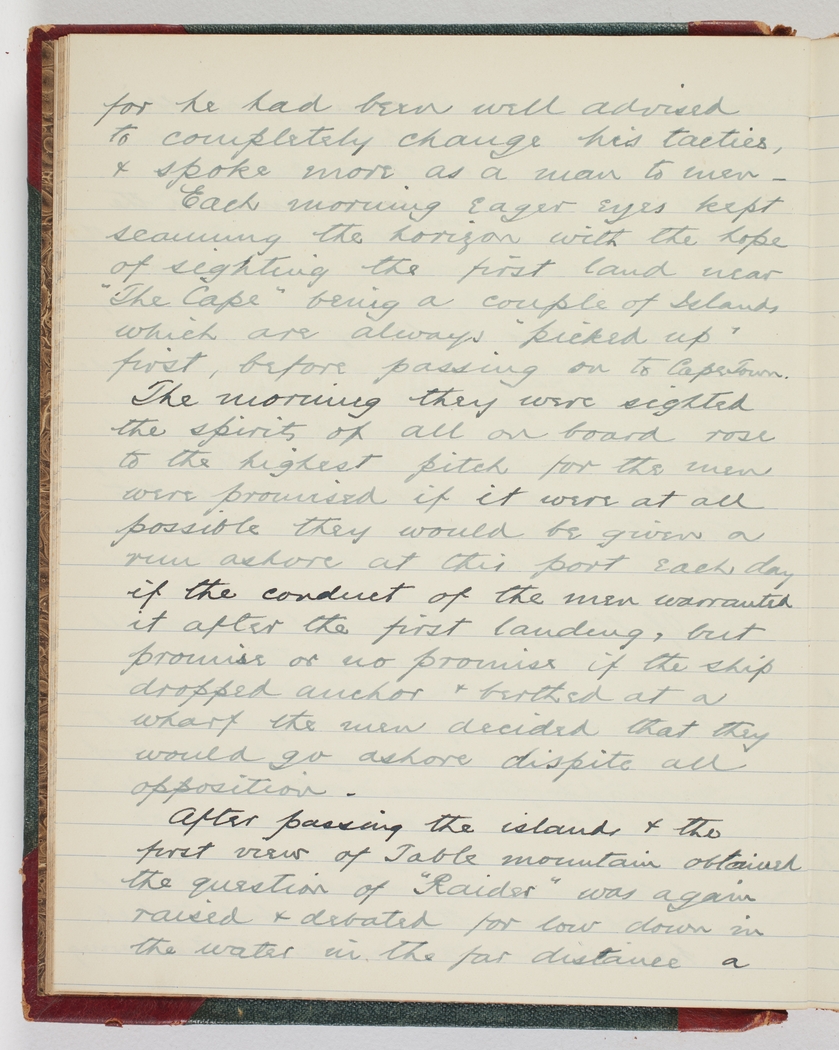 for he had been well advised
to completely change his tactics,
& spoke more as a man to men -
Each morning eager eyes kept
scanning the horizon with the hope
of sighting the first land near
"The Cape" being a couple of Islands
which are always "picked up"
first, before passing on to Cape Town.
The morning they were sighted
the spirits of all on board rose
to the highest pitch for the men
were promised if it were at all
possible they would be given a
run ashore at this port each day
if the conduct of the men warranted
it after the first landing, but
promise or no promise if the ship
dropped anchor & berthed at a
wharf the men decided that they
would go ashore dispite all
opposition -
After passing the islands & the
first view of Table mountain obtained
the question of "Raider" was again
raised & debated for low down in
the water in the far distance a